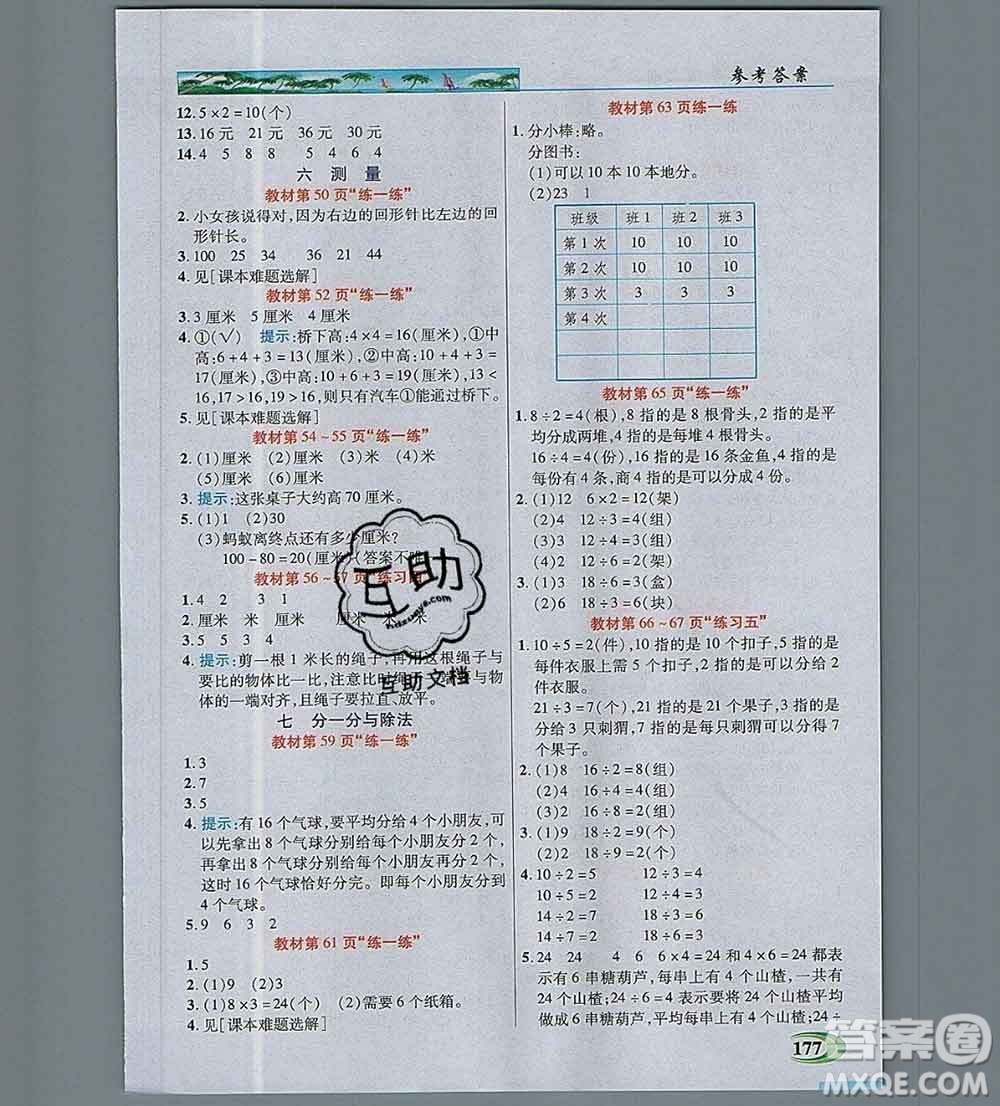 参考答案
12.5×2=10(个)
13.16元 21元 36元 30元
14.4 5 8 8 5 4 6 4
六 测 量
教材第50页“练一练”
2.小女孩说得对,因为右边的回形针比左边的回
形针长。
3.100 25 34 36 21 44
4.见[课本难题选解]
教材第52页“练一练”
3.3厘米 5厘米 4厘米
4.①(√) 提示:桥下高:4×4=16(厘米),①中
高:6+4+3=13(厘米),②中高:10+4+3=
17(厘米),③中高:10+6+3=19(厘米),13<
16,17>16,19>16,则只有汽车①能通过桥下。
5.见[课本难题选解]
教材第54~55页“练一练”
2.(1)厘米 (2)厘米 (3)米 (4)米
(5)厘米 (6)厘米
3.提示:这张桌子大约高70厘米。
5.(1)1 (2)30
(3)蚂蚁离终点还有多少厘米?
100-80=20(厘米)(答案不唯
教材第56~57页“练习
1.4 2 3 1
2.厘米 米 厘米 厘米 米 米
3.5 5 3 4
4.提示:剪一根1米长的绳子,再用这根绳子与
要比的物体比一比,注意比时绳子一端要与物
体的一端对齐,且绳子要拉直、放平。
七 分一分与除法
教材第59页“练一练”
1.3
2.7
3.5
4.提示:有16个气球,要平均分给4个小朋友,可
以先拿出8个气球分别给每个小朋友分2个,
再拿出8个气球分别给每个小朋友再分2个,
这时16个气球恰好分完。即每个小朋友分到
4个气球。
5.9 6 3 2
教材第61页“练一练”
1.5
2.(1)9 (2)3
3.(1)8×3=24(个) (2)需要6个纸箱。
4.见[课本难题选解]
教材第63页练一练
1.分小棒:略。
分图书:
(1)可以10本10本地分。
(2)23 1
班级 班1 班2 班3
第1次 10 10 10
第2次 10 10 10
第3次 3 3 3
第4次
教材第65页“练一练”
1.8÷2=4(根),8指的是8根骨头,2指的是平
均分成两堆,4指的是每堆4根骨头。
16÷4=4(份),16指的是16条金鱼,4指的是
每份有4条,商4指的是可以分成4份。
2.(1)12 6×2=12(架)
(2)4 12÷3=4(组)
(3)3 12÷4=3(组)
3.(1)6 18÷3=6(盒)
(2)6 18÷3=6(块)
教材第66~67页“练习五”
1.10÷5=2(件),10指的是10个扣子,5指的是
每件衣服上需5个扣子,2指的是可以分给2
件衣服。
21÷3=7(个),21指的是21个果子,3指的是
分给3只刺猬,7指的是每只刺猬可以分得7
个果子。
2.(1)8 16÷2=8(组)
(2)4 16÷4=4(组)
3.(1)9 18÷2=9(个)
(2)2 18÷9=2(个)
4.10÷2=5 12÷3=4
10÷5=2 12÷4=3
14÷2=7 18÷3=6
14÷7=2 18÷6=3
5.24 24 4 6 6×4=24和4×6=24都表
示有6串糖葫芦,每串上有4个山楂,一共有
24个山楂;24÷6=4表示要将24个山楂平均
做成6串糖葫芦,平均每串上有4个山楂;24÷
177
互助
hdzuoye.com
互助文档
答案圈
MXQE.COM